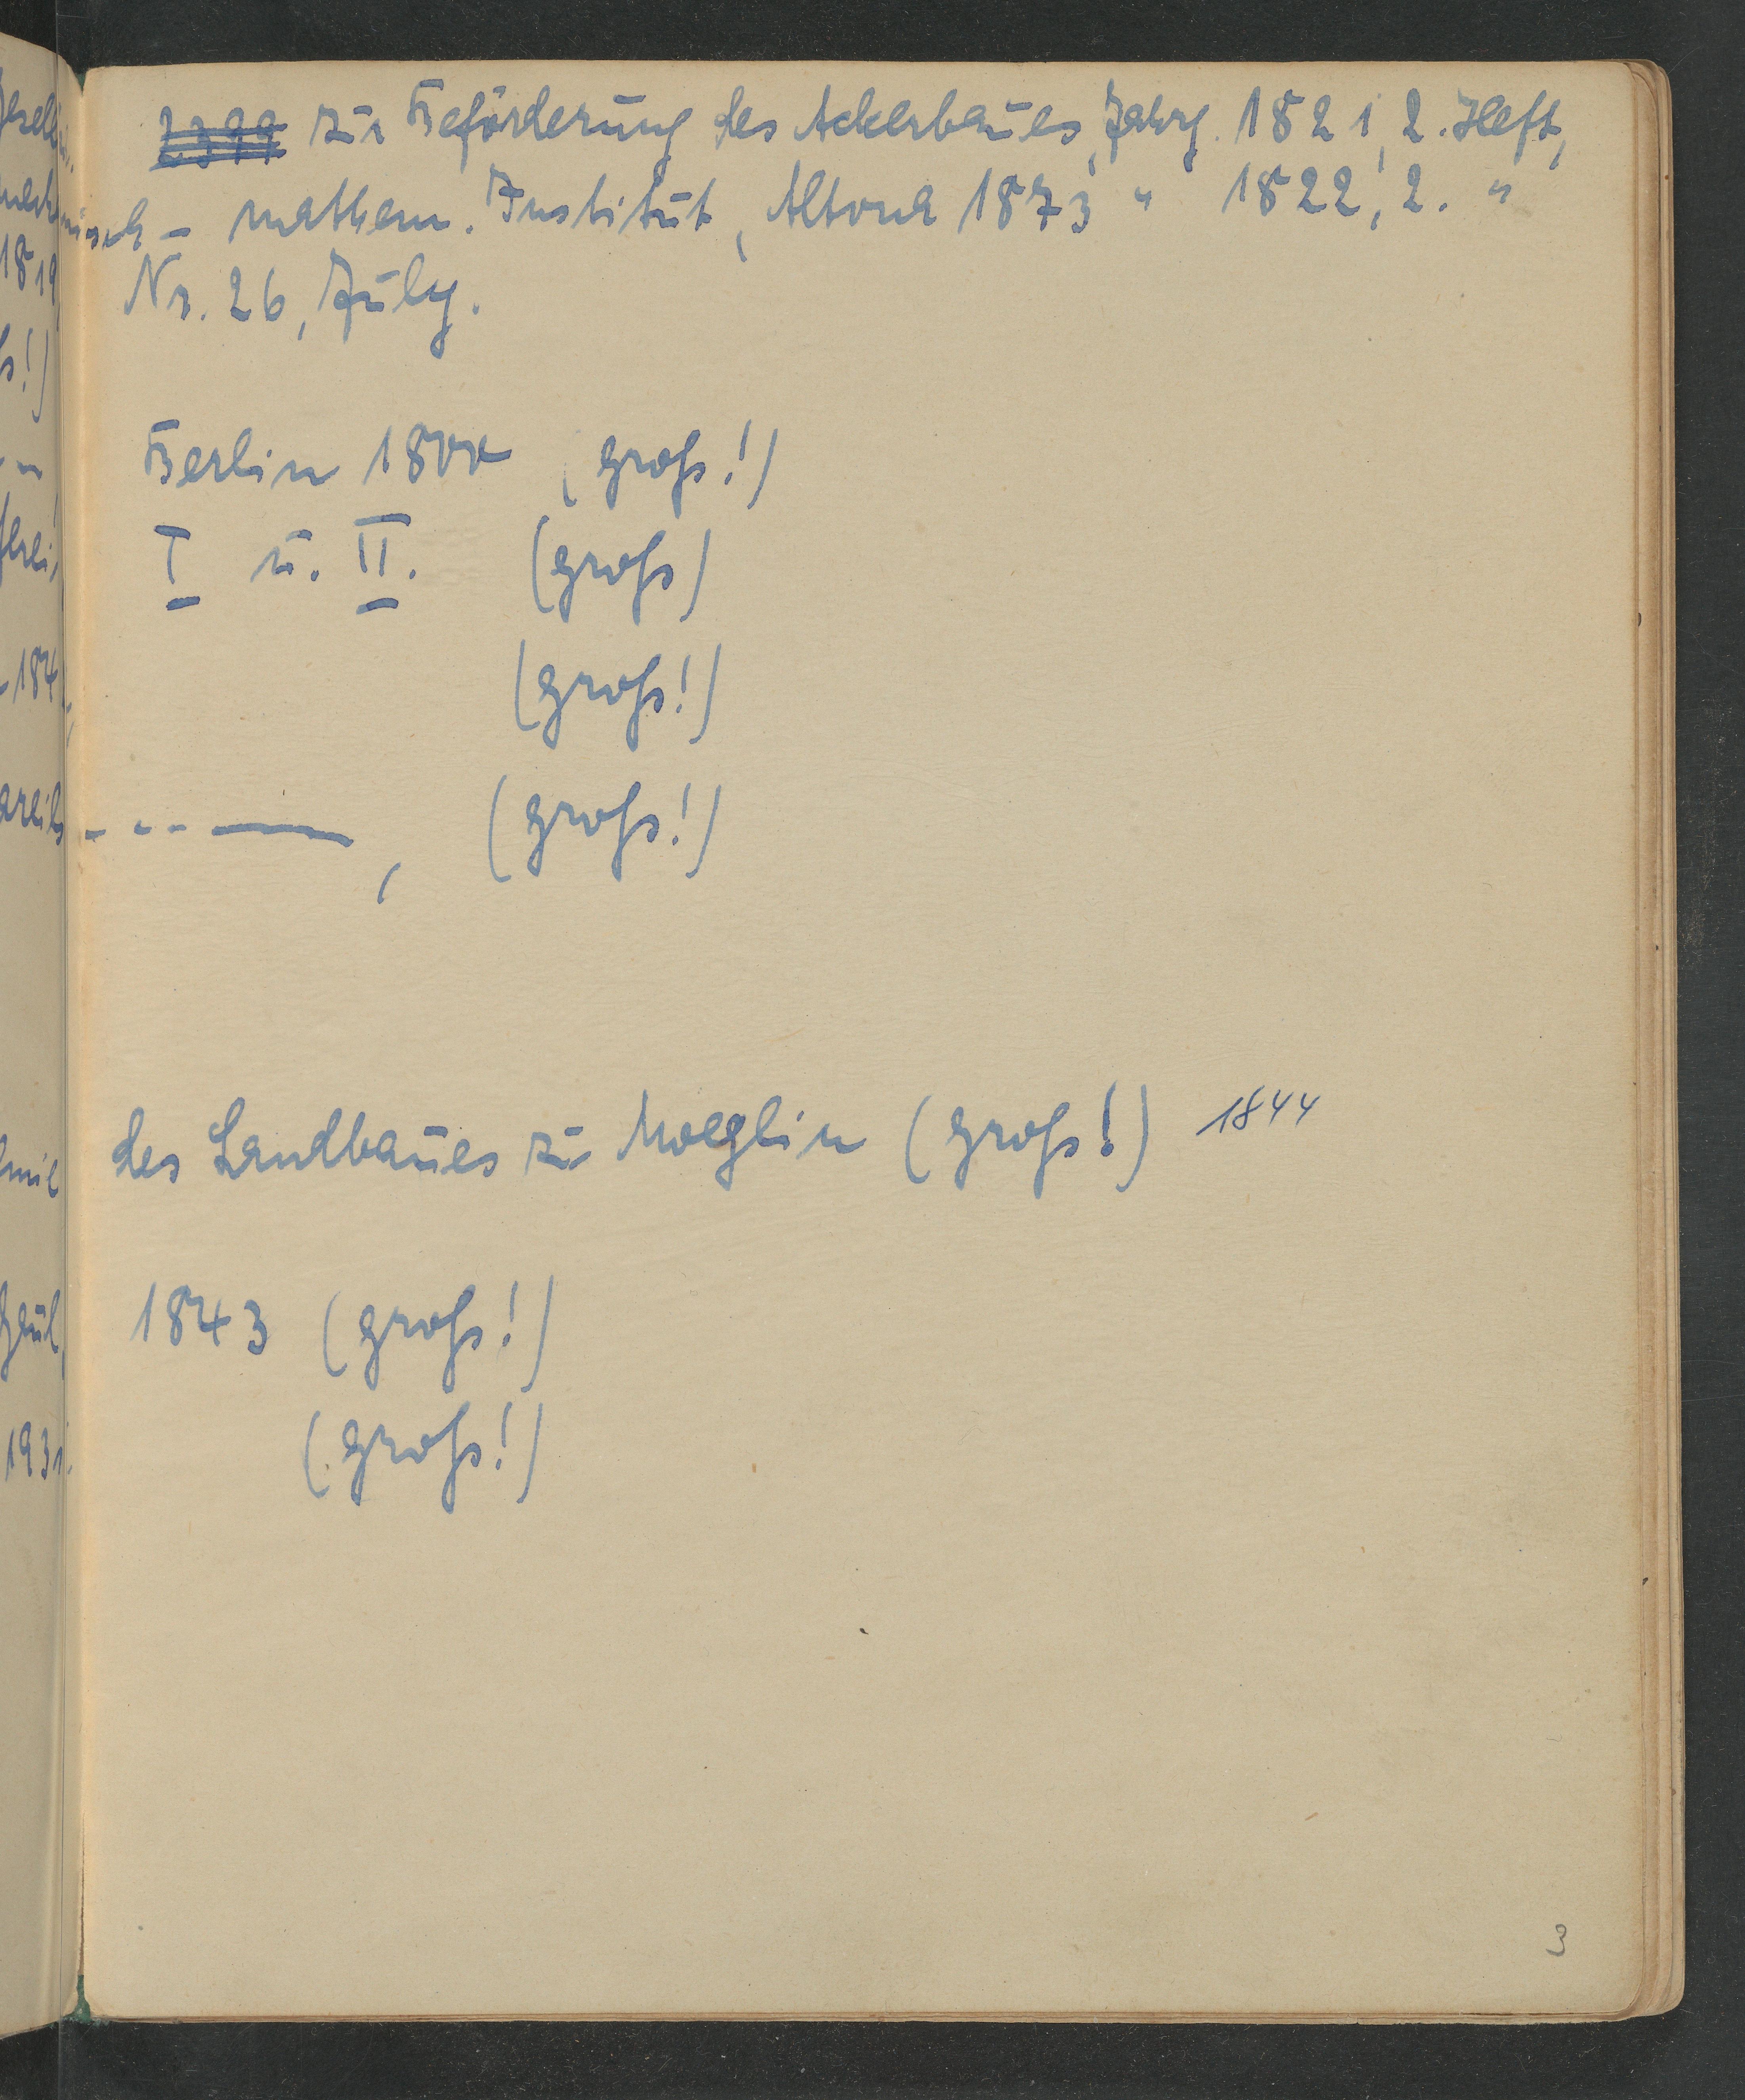 2399 zur Beförderung des Ackerbaues, Jahrg. 1821, 2. Heft,
nisch - mathem. Institut, Altona 1873 " 1822, 2. "
Nr. 26, July.
Berlin 1800 (groß!)
I u. II. (groß)
(groß!)
- - - —, (groß!)
des Landbaues zu Moeglin (groß!) 1844
1843 (groß!)
(groß!)
3